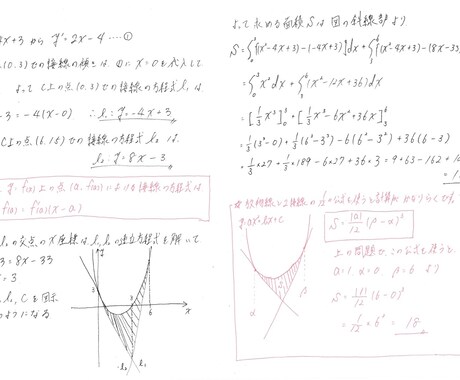 4x+3 から y'=2x-4 ……①
(0,3)での接線の傾きは ①に x=0 を代入して
よって C上の点(0,3)での接線の方程式 l₁ は
-3=-4(x-0) ∴ l₁: y=-4x+3
C上の点(6,15)での接線の方程式 l₂ は
l₂: y=8x-33
y=f(x)上の点(a, f(a))における接線の方程式は
-f(a)=f'(a)(x-a)
l₂の交点のx座標は l₁, l₂の連立方程式を解いて
+3=8x-33
=3
l₂, Cを図示
のようになる
3
3
6
x
l₂
l₁
よって求める面積Sは図の斜線部より
S=∫₀³{(x²-4x+3)-(-4x+3)}dx+∫₃⁶{(x²-4x+3)-(8x-33)
=∫₀³x²dx+∫₃⁶(x²-12x+36)dx
=[⅓x³]₀³+[⅓x³-6x²+36x]₃⁶
=⅓(3³-0)+⅓(6³-3³)-6(6²-3²)+36(6-3)
=⅓×27+⅓×189-6×27+36×3=9+63-162+10
放物線と接線の 1/12 公式を使うと計算が かなりらく
y=ax²+bx+c
α
β
S=|a|/12 (β-α)³
上の問題で この公式を使うと
a=1, α=0, β=6 より
S=|1|/12 (6-0)³
=1/12×6³=18